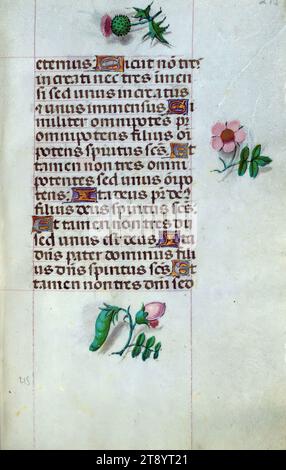 eternus Sicut non tres
increati nec tres imen
si sed unus increatus
et unus immensus Si
militer omnipotes pr
omnipotens filius oi
potens spiritus scs Et
tamen non tres omni
potentes sed unus oipo
tens Ita deus pr de
filius deus spiritus scs
Et tamen non tres dij
sed unus est deus Ita
dns pater dominus fili
us dns spiritus scs Et
tamen non tres dni sed
215
alamy
Image ID: 2T8Y1T21
www.alamy.com